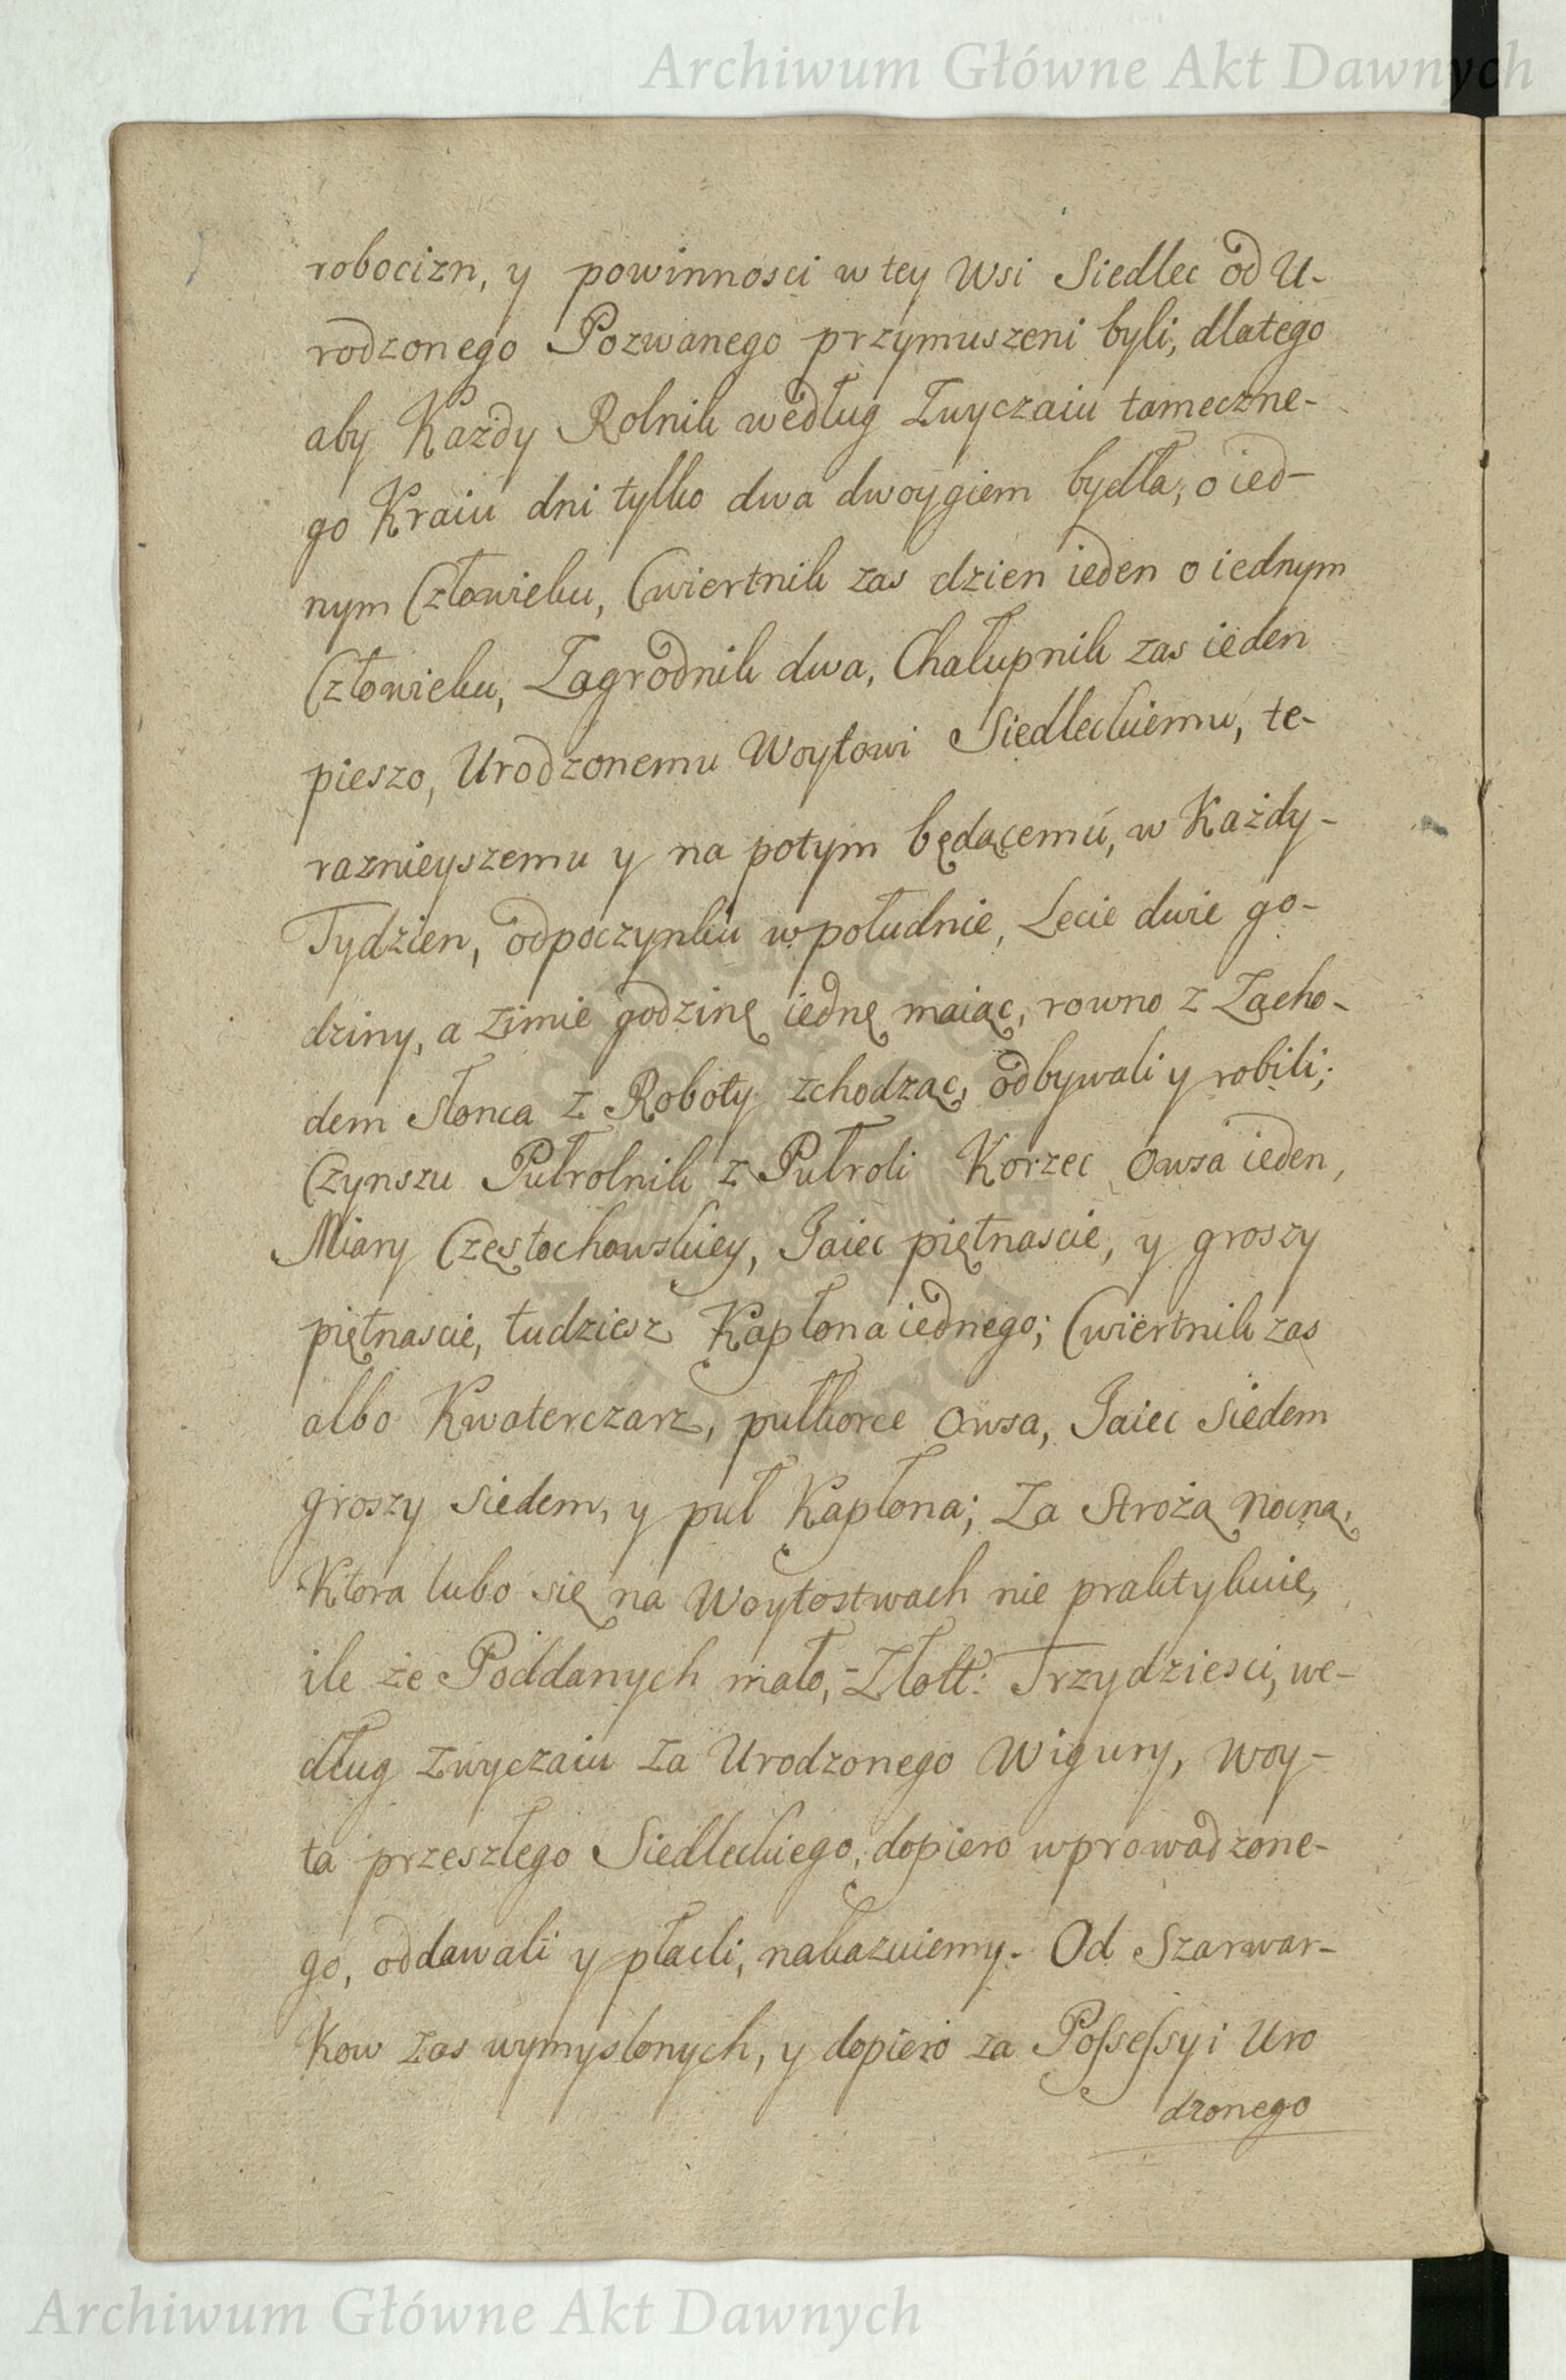 Archiwum Główne Akt Dawnych
robocizn, y powinnosci w tey Wsi Siedlec od U-
rodzonego Pozwanego przymuszeni byli, dlatego
aby Każdy Rolnik według Zwyczaiu tameczne-
go Kraiu dni tylko dwa dwoygiem bydła, o ied-
nym Człowieku, Cwiertnik zas dzien ieden o iednym
Człowieku, Zagrodnik dwa, Chałupnik zas ieden
pieszo, Urodzonemu Woytowi Siedleckiemu, te-
raznieyszemu y na potym będącemu, w Każdy-
Tydzien, odpoczynku w południe, Lecie dwie go-
dziny, a Zimie godzinę iednę maiąc, rowno z Zacho-
dem słonca z Roboty zchodząc, odbywali y robili;
Czynszu Pułrolnik z Pułroli Korzec Owsa ieden,
Miary Częstochowskiey, Jaiec piętnascie, y groszy
piętnascie, tudziesz Kapłona iednego; Cwiertnik zas
albo Kwaterczarz, pułkorce Owsa, Jaiec siedem
groszy siedem, y puł Kapłona; Za Strożą nocną,
Ktora lubo się na Woytostwach nie praktykuie,
ile że Poddanych mało, Złott: Trzydziesci, we-
dług zwyczaiu za Urodzonego Wigury, Woy-
ta przeszłego Siedleckiego, dopiero wprowadzone-
go, oddawali y płacli, nakazuiemy. Od Szarwar-
Kow zas wymyslonych, y dopiero za Possessyi Uro
dzonego
ARCHIWUM GŁÓWNE AKT DAWNYCH
Archiwum Główne Akt Dawnych